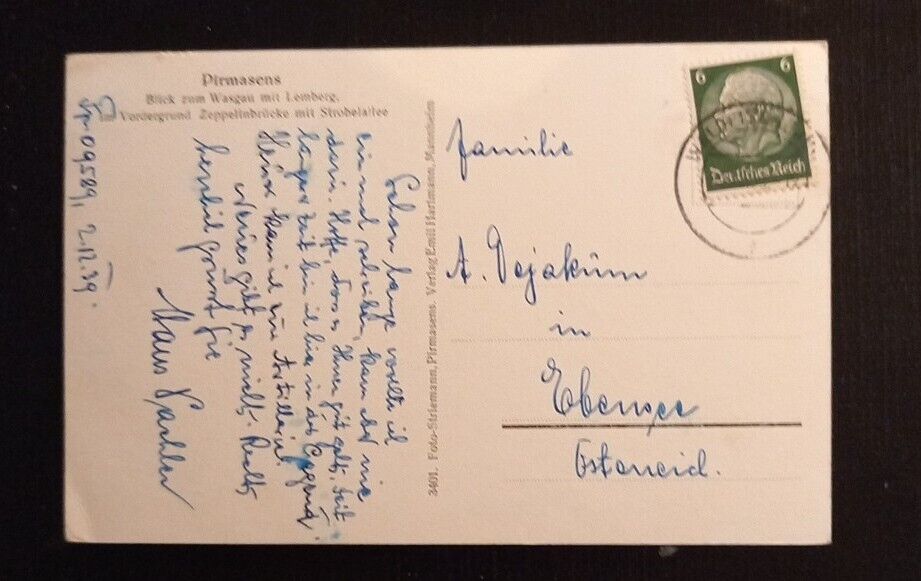 Pirmasens
Blick zum Wasgau mit Lemberg,
Vordergrund Zeppelinbrücke mit Strobelallee
09589, 2.12.39.
Schon lange wollte ich
einmal schreiben, kam aber nie
dazu. Hoffe, dass es Ihnen gut geht. Seit
langer Zeit bin ich hier in der Gegend.
kam ich zur Artillerie.
Neues gibt es nicht. Recht
herzlich grüsst Sie
Hans
3401. Foto-Striemann, Pirmasens. Verlag Emil Hartmann, Mannheim
6 6
Deutsches Reich
Familie
A. Dejakum
in
Ebensee
Österreich.